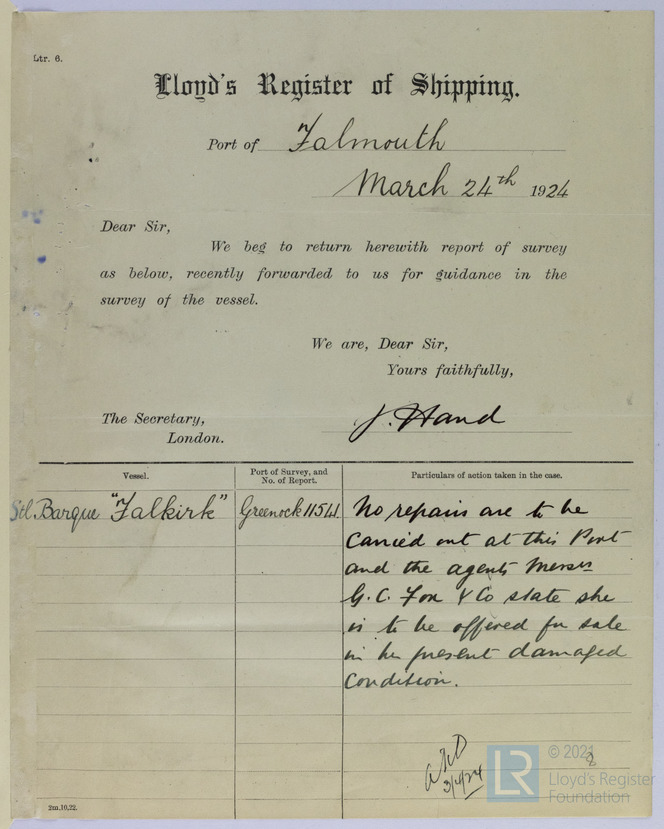 Ltr. 6.
Lloyd's Register of Shipping.
Port of Falmouth
March 24th 1924
Dear Sir,
We beg to return herewith report of survey
as below, recently forwarded to us for guidance in the
survey of the vessel.
We are, Dear Sir,
Yours faithfully,
The Secretary,
London.
J. Hand
Vessel.
Port of Survey, and
No. of Report.
Particulars of action taken in the case.
Stl Barque "Falkirk"
Greenock 11541
No repairs are to be
carried out at this Port
and the agents Messrs
G. C. Fox & Co state she
is to be offered for sale
in her present damaged
condition.
3/4/24
2m.10.22.
LR
© 2021
Lloyd's Register
Foundation